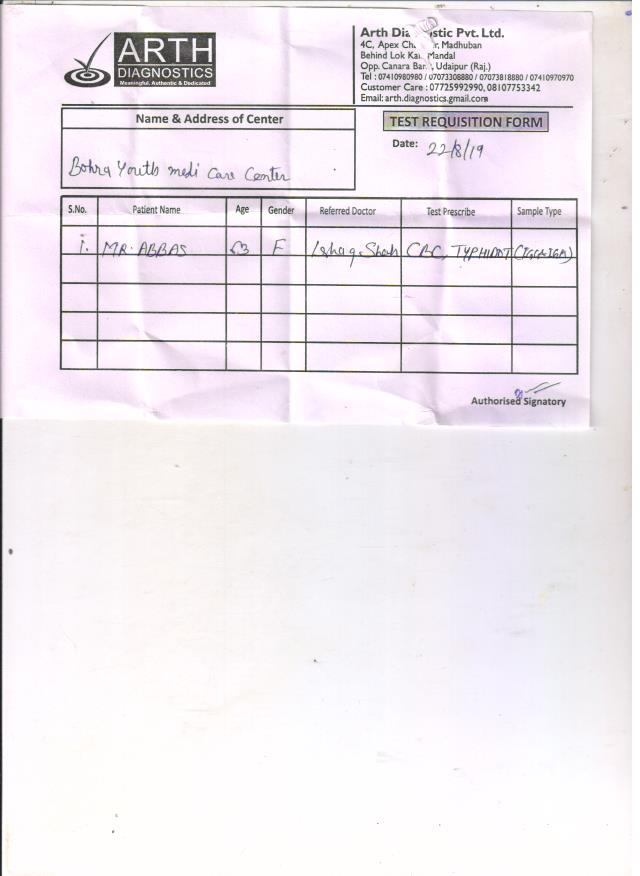 ARTH
DIAGNOSTICS
Meaningful, Authentic & Dedicated
Arth Diagnostic Pvt. Ltd.
4C, Apex Madhuban
Behind Lok Kala Mandal
Opp. Canara Bank, Udaipur (Raj.)
Tel : 07410980980 / 07073308880 / 07073818880 / 07410970970
Customer Care : 07725992990, 08107753342
Email: arth.diagnostics.gmail.com
Name & Address of Center
TEST REQUISITION FORM
Date: 22/8/19
Bohra Youth Medi Care Center
S.No. Patient Name Age Gender Referred Doctor Test Prescribe Sample Type
1. MR. ABBAS F Ishaq Shah CBC, TYPHIDOT
Authorised Signatory